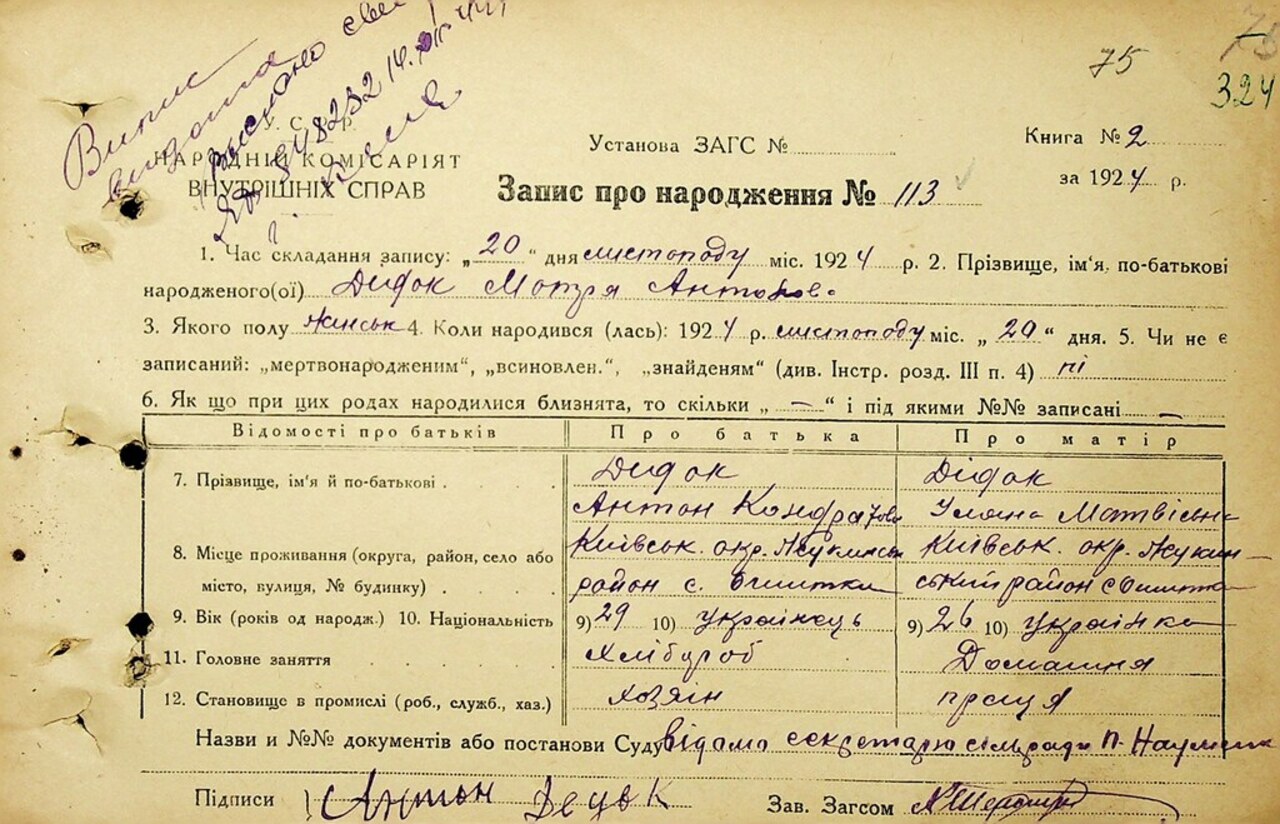 75
324
Випис
видана
У. С. Р. Р.
НАРОДНІЙ КОМІСАРІЯТ
ВНУТРІШНІХ СПРАВ
Установа ЗАГС №
Книга № 2
за 1924 р.
Запис про народження № 113
1. Час складання запису: „20“ дня листопаду міс. 1924 р. 2. Прізвище, ім'я, по-батькові
народженого(ої) Дидок Мотря Антонов.
3. Якого полу жінськ 4. Коли народився (лась): 1924 р. листопаду міс. „20“ дня. 5. Чи не є
записаний: „мертвонародженим“, „всиновлен.“, „знайденям“ (див. Інстр. розд. III п. 4) ні
6. Як що при цих родах народилися близнята, то скільки „—“ і під якими №№ записані —
Відомості про батьків Про батька Про матір
7. Прізвище, ім'я й по-батькові Дидок Дідок
Антон Кондратов Уляна Матвієвна
8. Місце проживання (округа, район, село або Київськ. окр. Київськ. окр.
місто, вулиця, № будинку) район с. ський район с
9. Вік (років од народж.) 10. Національність 9) 29 10) українець 9) 26 10) українка
11. Головне заняття Хлібороб Домашня
12. Становище в промислі (роб., служб., хаз.) хозяін праця
Назви и №№ документів або постанови Суду відома секретаря сільради
Підписи Антон Зав. Загсом